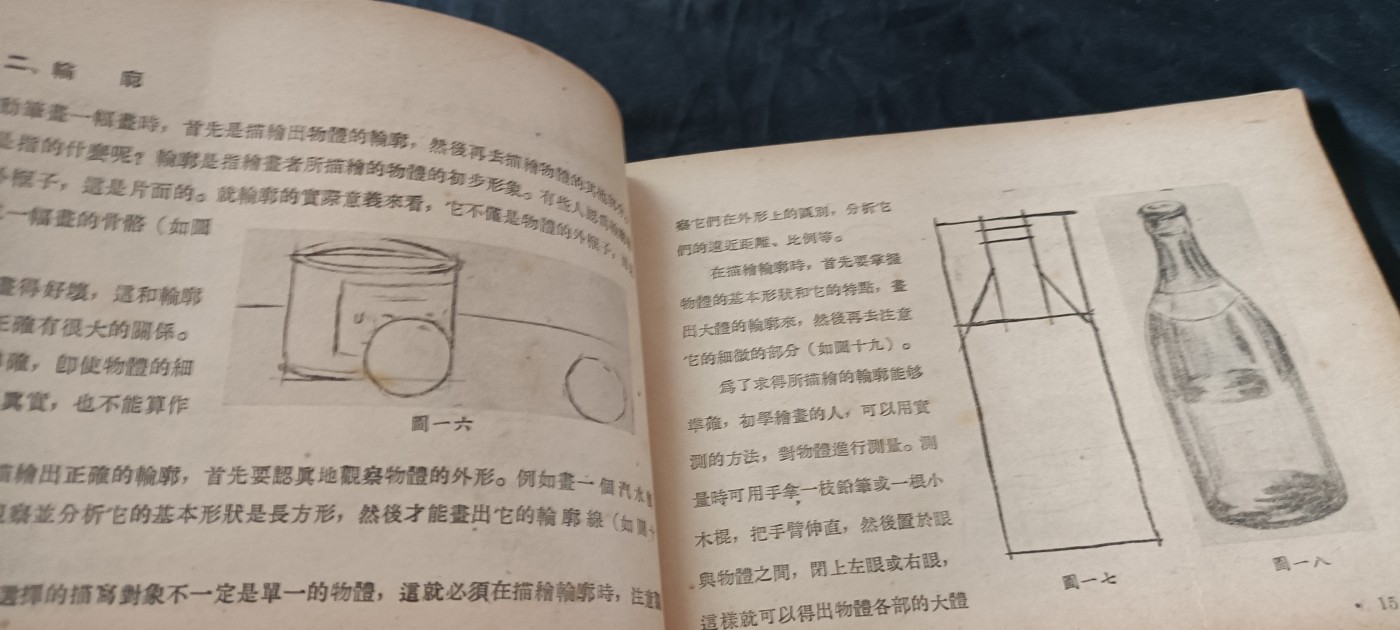 二、輪　廓
動筆畫一幅畫時，首先是描繪出物體的輪廓，然後再去描繪物體的其他部分。
是指的什麼呢？輪廓是指繪畫者所描繪的物體的初步形象。有些人認爲輪廓
外框子，這是片面的。就輪廓的實際意義來看，它不僅是物體的外框子，
一幅畫的骨骼（如圖
畫得好壞，這和輪廓
正確有很大的關係。
確，卽使物體的細
真實，也不能算作
圖一六
描繪出正確的輪廓，首先要認眞地觀察物體的外形。例如畫一個汽水
觀察並分析它的基本形狀是長方形，然後才能畫出它的輪廓線（如圖十
選擇的描寫對象不一定是單一的物體，這就必須在描繪輪廓時，注意
察它們在外形上的區別，分析它
們的遠近距離、比例等。
在描繪輪廓時，首先要掌握
物體的基本形狀和它的特點，畫
出大體的輪廓來，然後再去注意
它的細微的部分（如圖十九）。
爲了求得所描繪的輪廓能够
準確，初學繪畫的人，可以用實
測的方法，對物體進行測量。測
量時可用手拿一枝鉛筆或一根小
木棍，把手臂伸直，然後置於眼
與物體之間，閉上左眼或右眼，
這樣就可以得出物體各部的大體
圖一七
圖一八
• 15